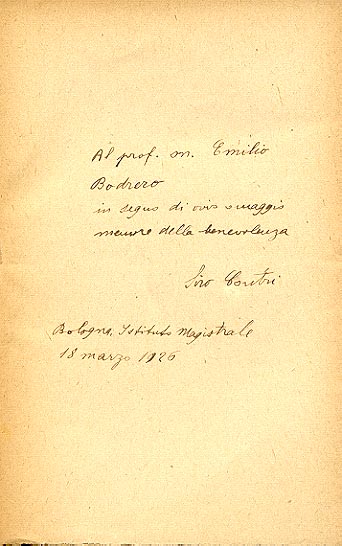 Al prof. m. Emilio
Bodrero
in segno di vivo omaggio
memore della benevolenza
Siro Contri
Bologna, Istituto Magistrale
18 marzo 1926